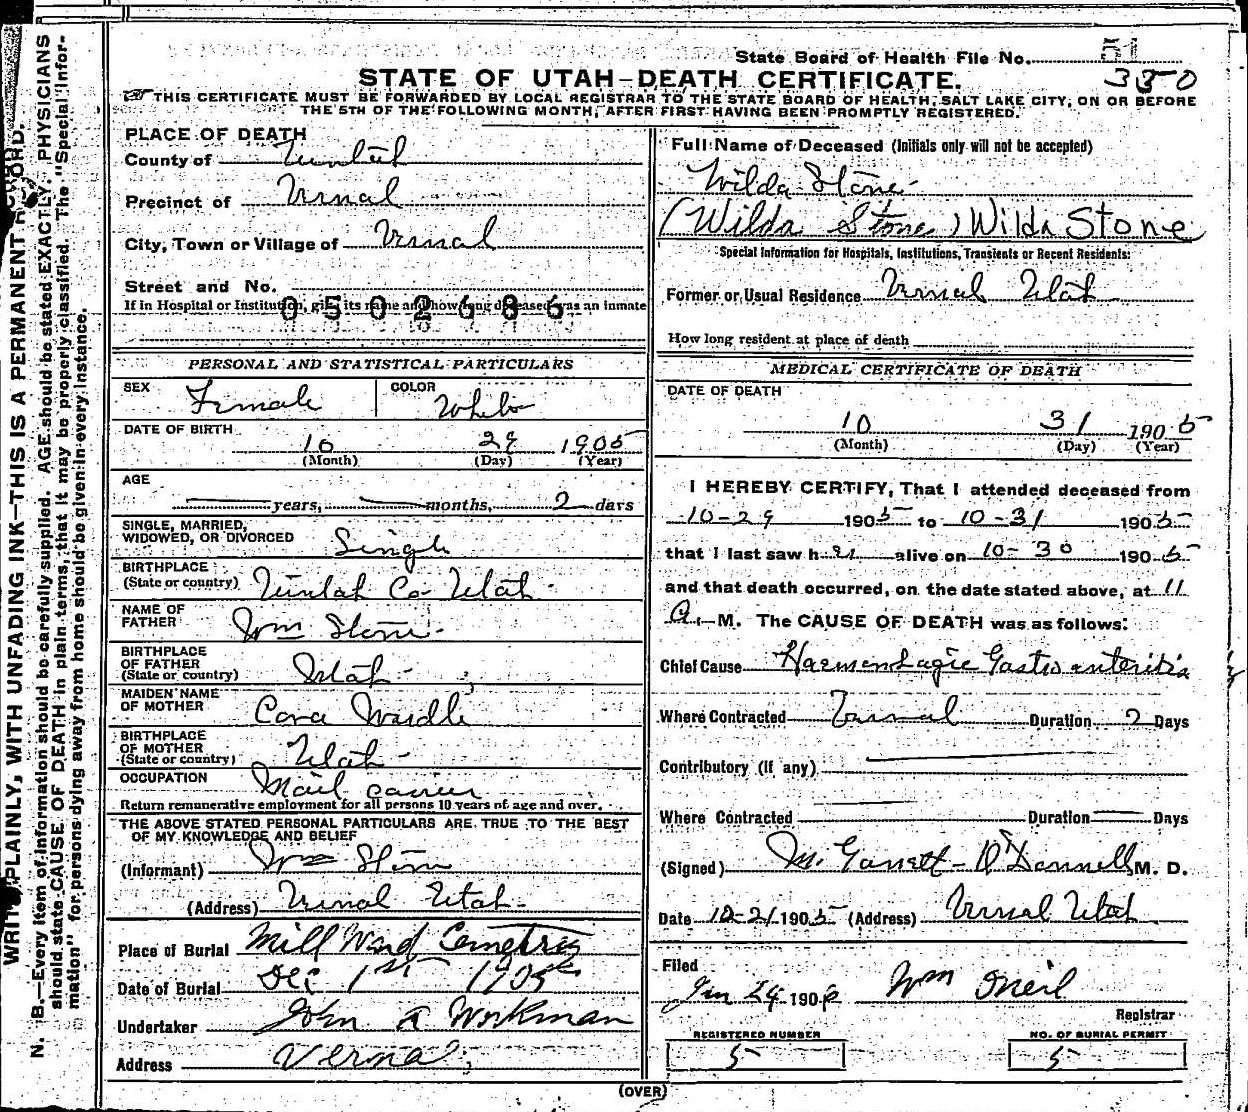 State Board of Health File No. 51
STATE OF UTAH—DEATH CERTIFICATE. 350
THIS CERTIFICATE MUST BE FORWARDED BY LOCAL REGISTRAR TO THE STATE BOARD OF HEALTH, SALT LAKE CITY, ON OR BEFORE
THE 5TH OF THE FOLLOWING MONTH, AFTER FIRST HAVING BEEN PROMPTLY REGISTERED.
PLACE OF DEATH
County of Uintah
Precinct of Vernal
City, Town or Village of Vernal
Street and No.
If in Hospital or Institution, give its name and how long deceased was an inmate
0502686
Full Name of Deceased (Initials only will not be accepted)
Wilda Stone
(Wilda Stone) Wilda Stone
Special Information for Hospitals, Institutions, Transients or Recent Residents:
Former or Usual Residence Vernal Utah
How long resident at place of death
PERSONAL AND STATISTICAL PARTICULARS
SEX Female COLOR White
DATE OF BIRTH 10 29 1905
(Month) (Day) (Year)
AGE
years, months, 2 days
SINGLE, MARRIED,
WIDOWED, OR DIVORCED Single
BIRTHPLACE
(State or country) Uintah Co Utah
NAME OF
FATHER Wm Stone
BIRTHPLACE
OF FATHER
(State or country) Utah
MAIDEN NAME
OF MOTHER Cora Wardle
BIRTHPLACE
OF MOTHER
(State or country) Utah
OCCUPATION Mail carrier
Return remunerative employment for all persons 10 years of age and over.
THE ABOVE STATED PERSONAL PARTICULARS ARE TRUE TO THE BEST
OF MY KNOWLEDGE AND BELIEF
(Informant) Wm Stone
(Address) Vernal Utah
Place of Burial Mill Ward Cemetrey
Date of Burial Dec 1st 1905
Undertaker John A Workman
Address Vernal
MEDICAL CERTIFICATE OF DEATH
DATE OF DEATH
10 31 1905
(Month) (Day) (Year)
I HEREBY CERTIFY, That I attended deceased from
10-29 1905 to 10-31 1905
that I last saw her alive on 10-30 1905
and that death occurred, on the date stated above, at 11
A. M. The CAUSE OF DEATH was as follows:
Chief Cause Haemorrhagic Gastro enteritis
Where Contracted Vernal Duration 2 Days
Contributory (If any)
Where Contracted Duration Days
(Signed) M. Garrett-O'Donnell M. D.
Date 1905 (Address) Vernal Utah
Filed
Jan 24 1906 Wm Oneil
Registrar
REGISTERED NUMBER
5
NO. OF BURIAL PERMIT
5
(OVER)
WRITE PLAINLY, WITH UNFADING INK—THIS IS A PERMANENT RECORD.
N. B.—Every item of information should be carefully supplied. AGE should be stated EXACTLY. PHYSICIANS
should state CAUSE OF DEATH in plain terms, that it may be properly classified. The "Special Infor-
mation" for persons dying away from home should be given in every instance.